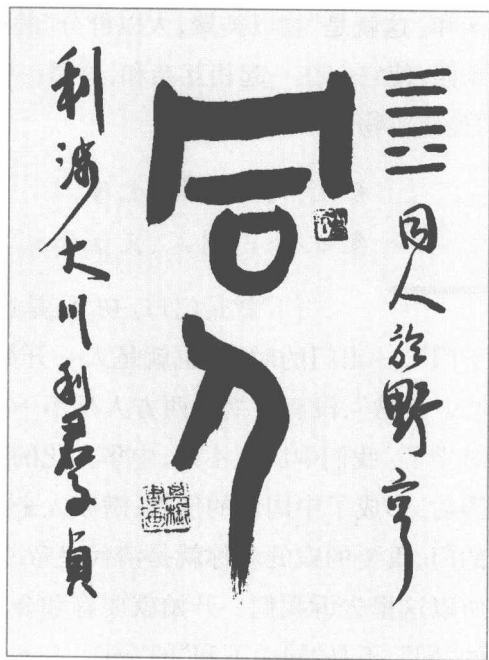 ䷌ 同人於野亨
同人
利涉大川利君子貞